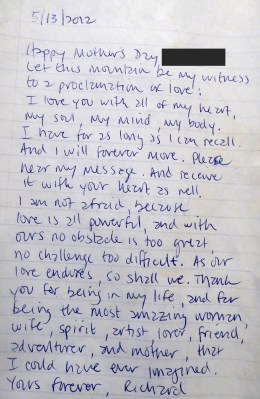 5/13/2012
Happy Mother's Day
Let this mountain be my witness
to a proclamation of love:
I love you with all of my heart,
my soul, my mind, my body.
I have for as long as I can recall.
And I will forever more. Please
hear my message. And receive
it with your heart as well.
I am not afraid, because
love is all powerful, and with
ours no obstacle is too great,
no challenge too difficult. As our
love endures, so shall we. Thank
you for being in my life, and for
being the most amazing woman,
wife, spirit, artist, lover, friend,
adventurer, and mother, that
I could have ever imagined.
Yours forever, Richard